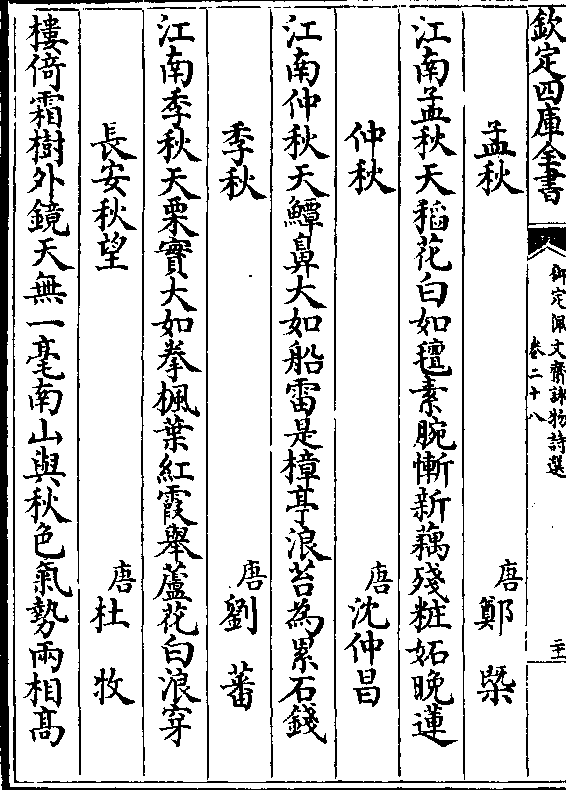 欽定四庫全書
御定佩文齋詠物詩選
卷二十八
孟秋
唐鄭槩
江南孟秋天稻花白如氊素腕慚新藕殘粧妬晚蓮
仲秋
唐沈仲昌
江南仲秋天鱏鼻大如船雷是樟亭浪苔為累石錢
季秋
唐劉蕃
江南季秋天栗實大如拳楓葉紅霞舉蘆花白浪穿
長安秋望
唐杜牧
樓倚霜樹外鏡天無一毫南山與秋色氣勢兩相髙